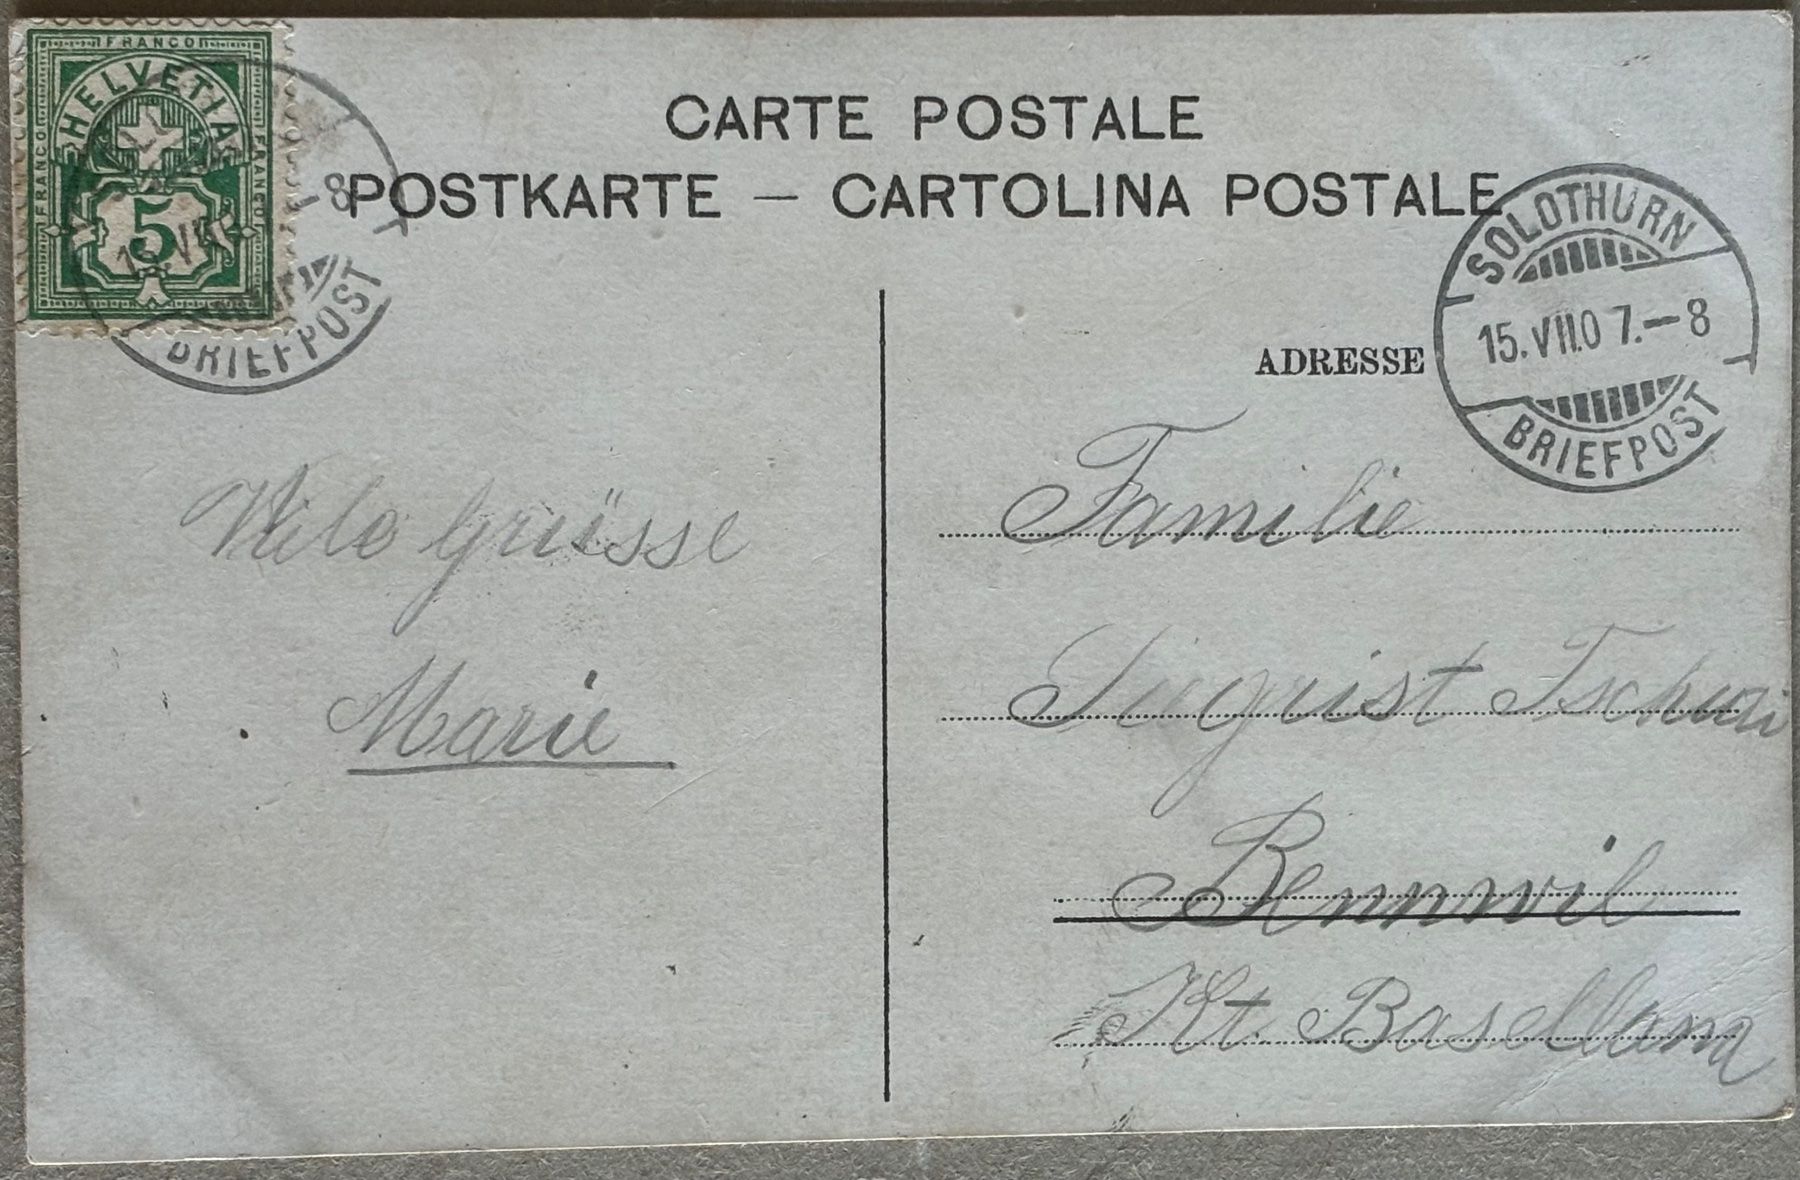 FRANCO
HELVETIA
FRANCO
FRANCO
5
-8
BRIEFPOST
CARTE POSTALE
POSTKARTE — CARTOLINA POSTALE
SOLOTHURN
15.VII.07.–8
BRIEFPOST
ADRESSE
Grüsse
Marie
Familie
August Tschudi
Bennwil
Kt. Baselland